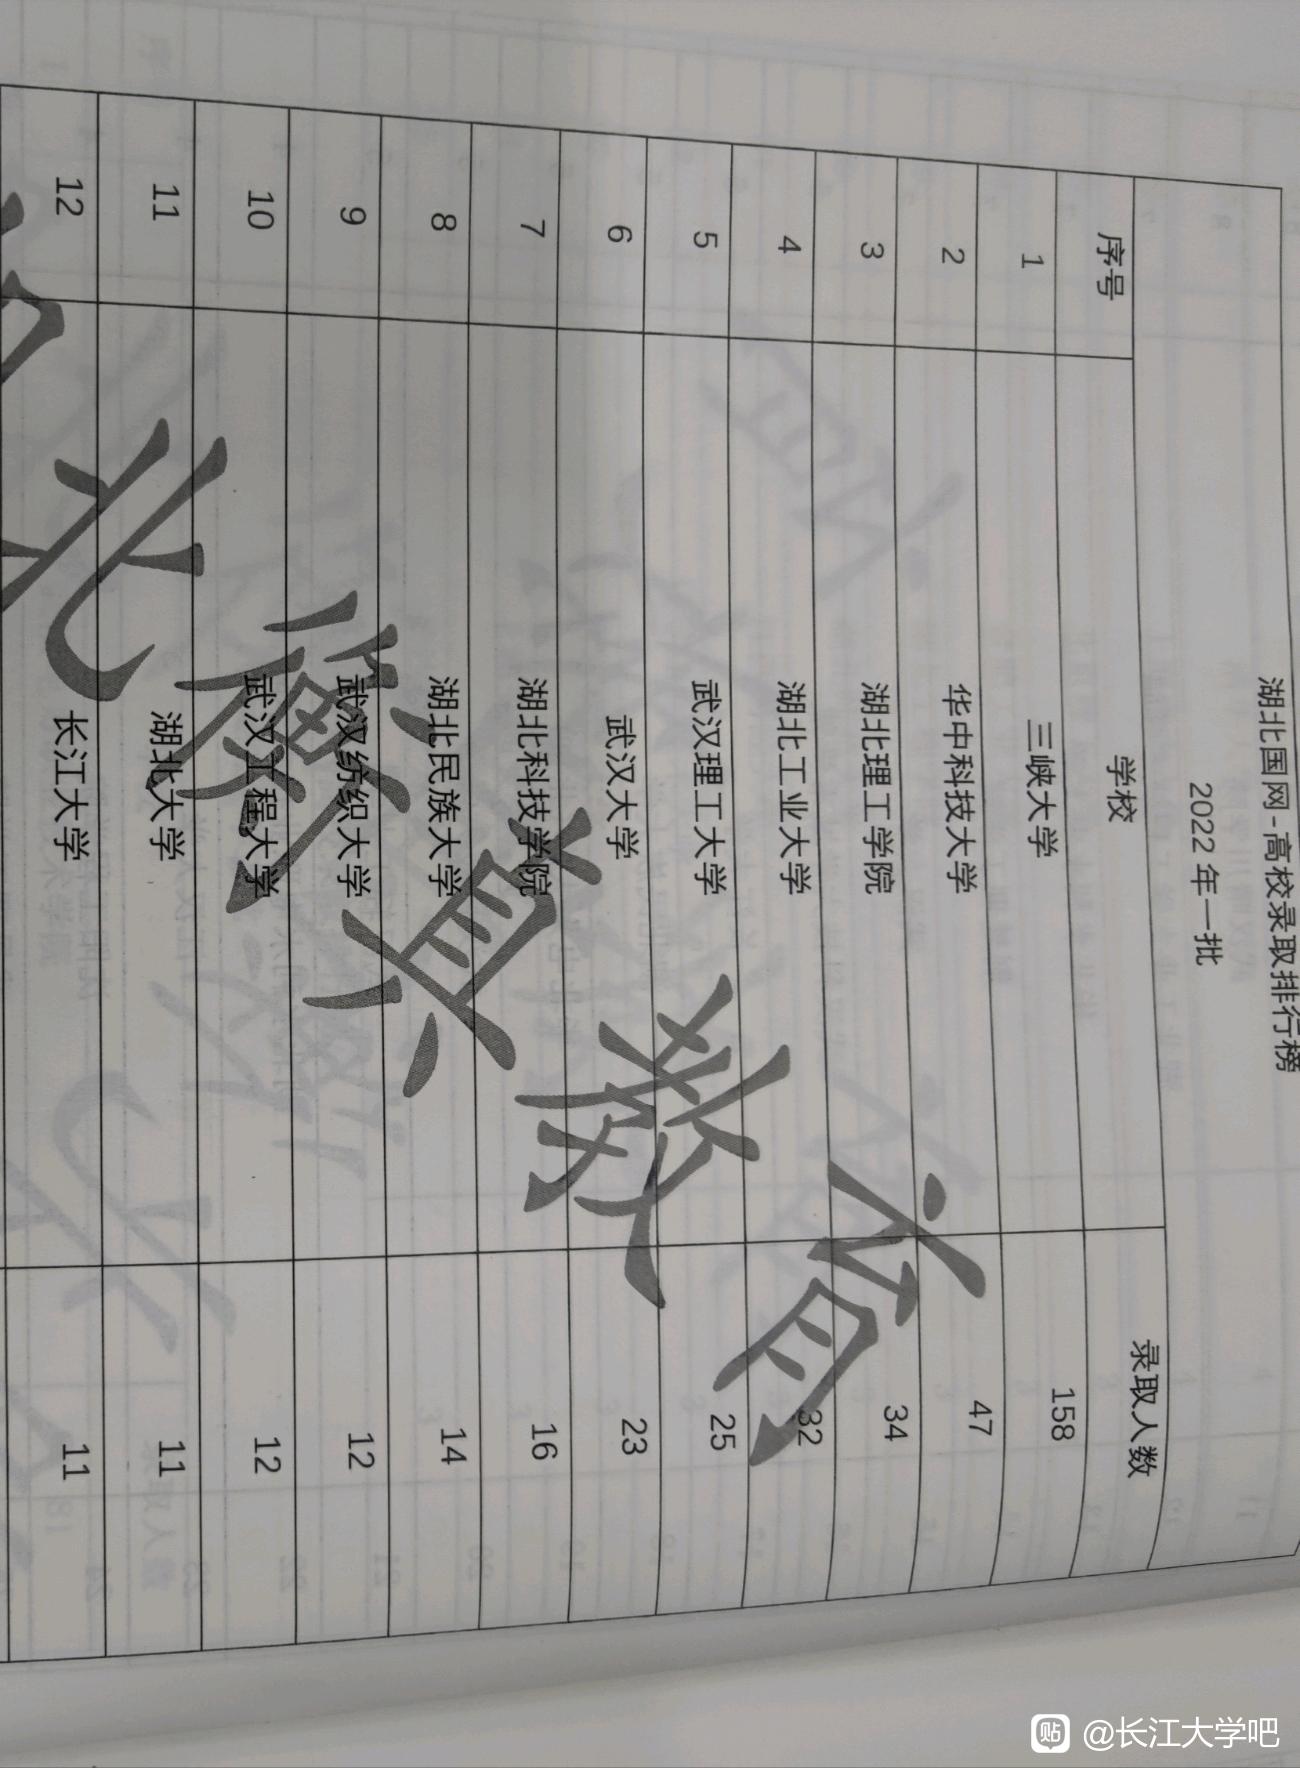 湖北国网-高校录取排行榜
2022 年一批
序号 学校 录取人数
1 三峡大学 158
2 华中科技大学 47
3 湖北理工学院 34
4 湖北工业大学 32
5 武汉理工大学 25
6 武汉大学 23
7 湖北科技学院 16
8 湖北民族大学 14
9 武汉纺织大学 12
10 武汉工程大学 12
11 湖北大学 11
12 长江大学 11
北冀真教育
贴 @长江大学吧